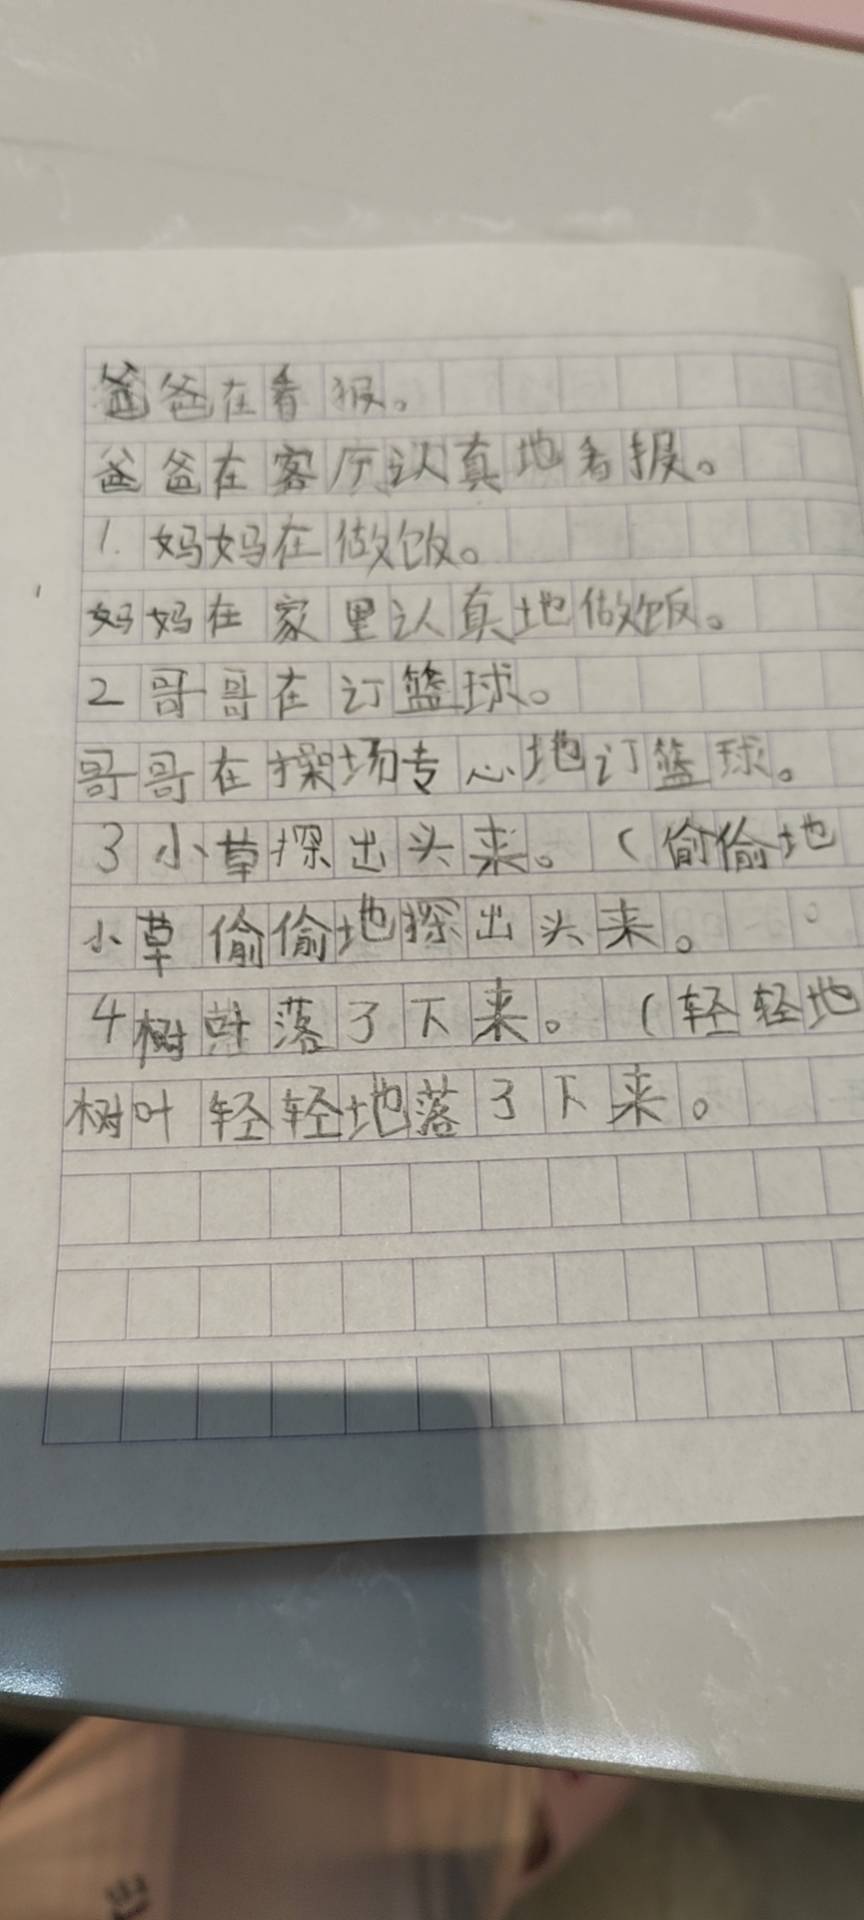 爸爸在看报。
爸爸在客厅认真地看报。
1. 妈妈在做饭。
妈妈在家里认真地做饭。
2 哥哥在订篮球。
哥哥在操场专心地订篮球。
3 小草探出头来。(偷偷地
小草偷偷地探出头来。
4 树叶落了下来。(轻轻地
树叶轻轻地落了下来。